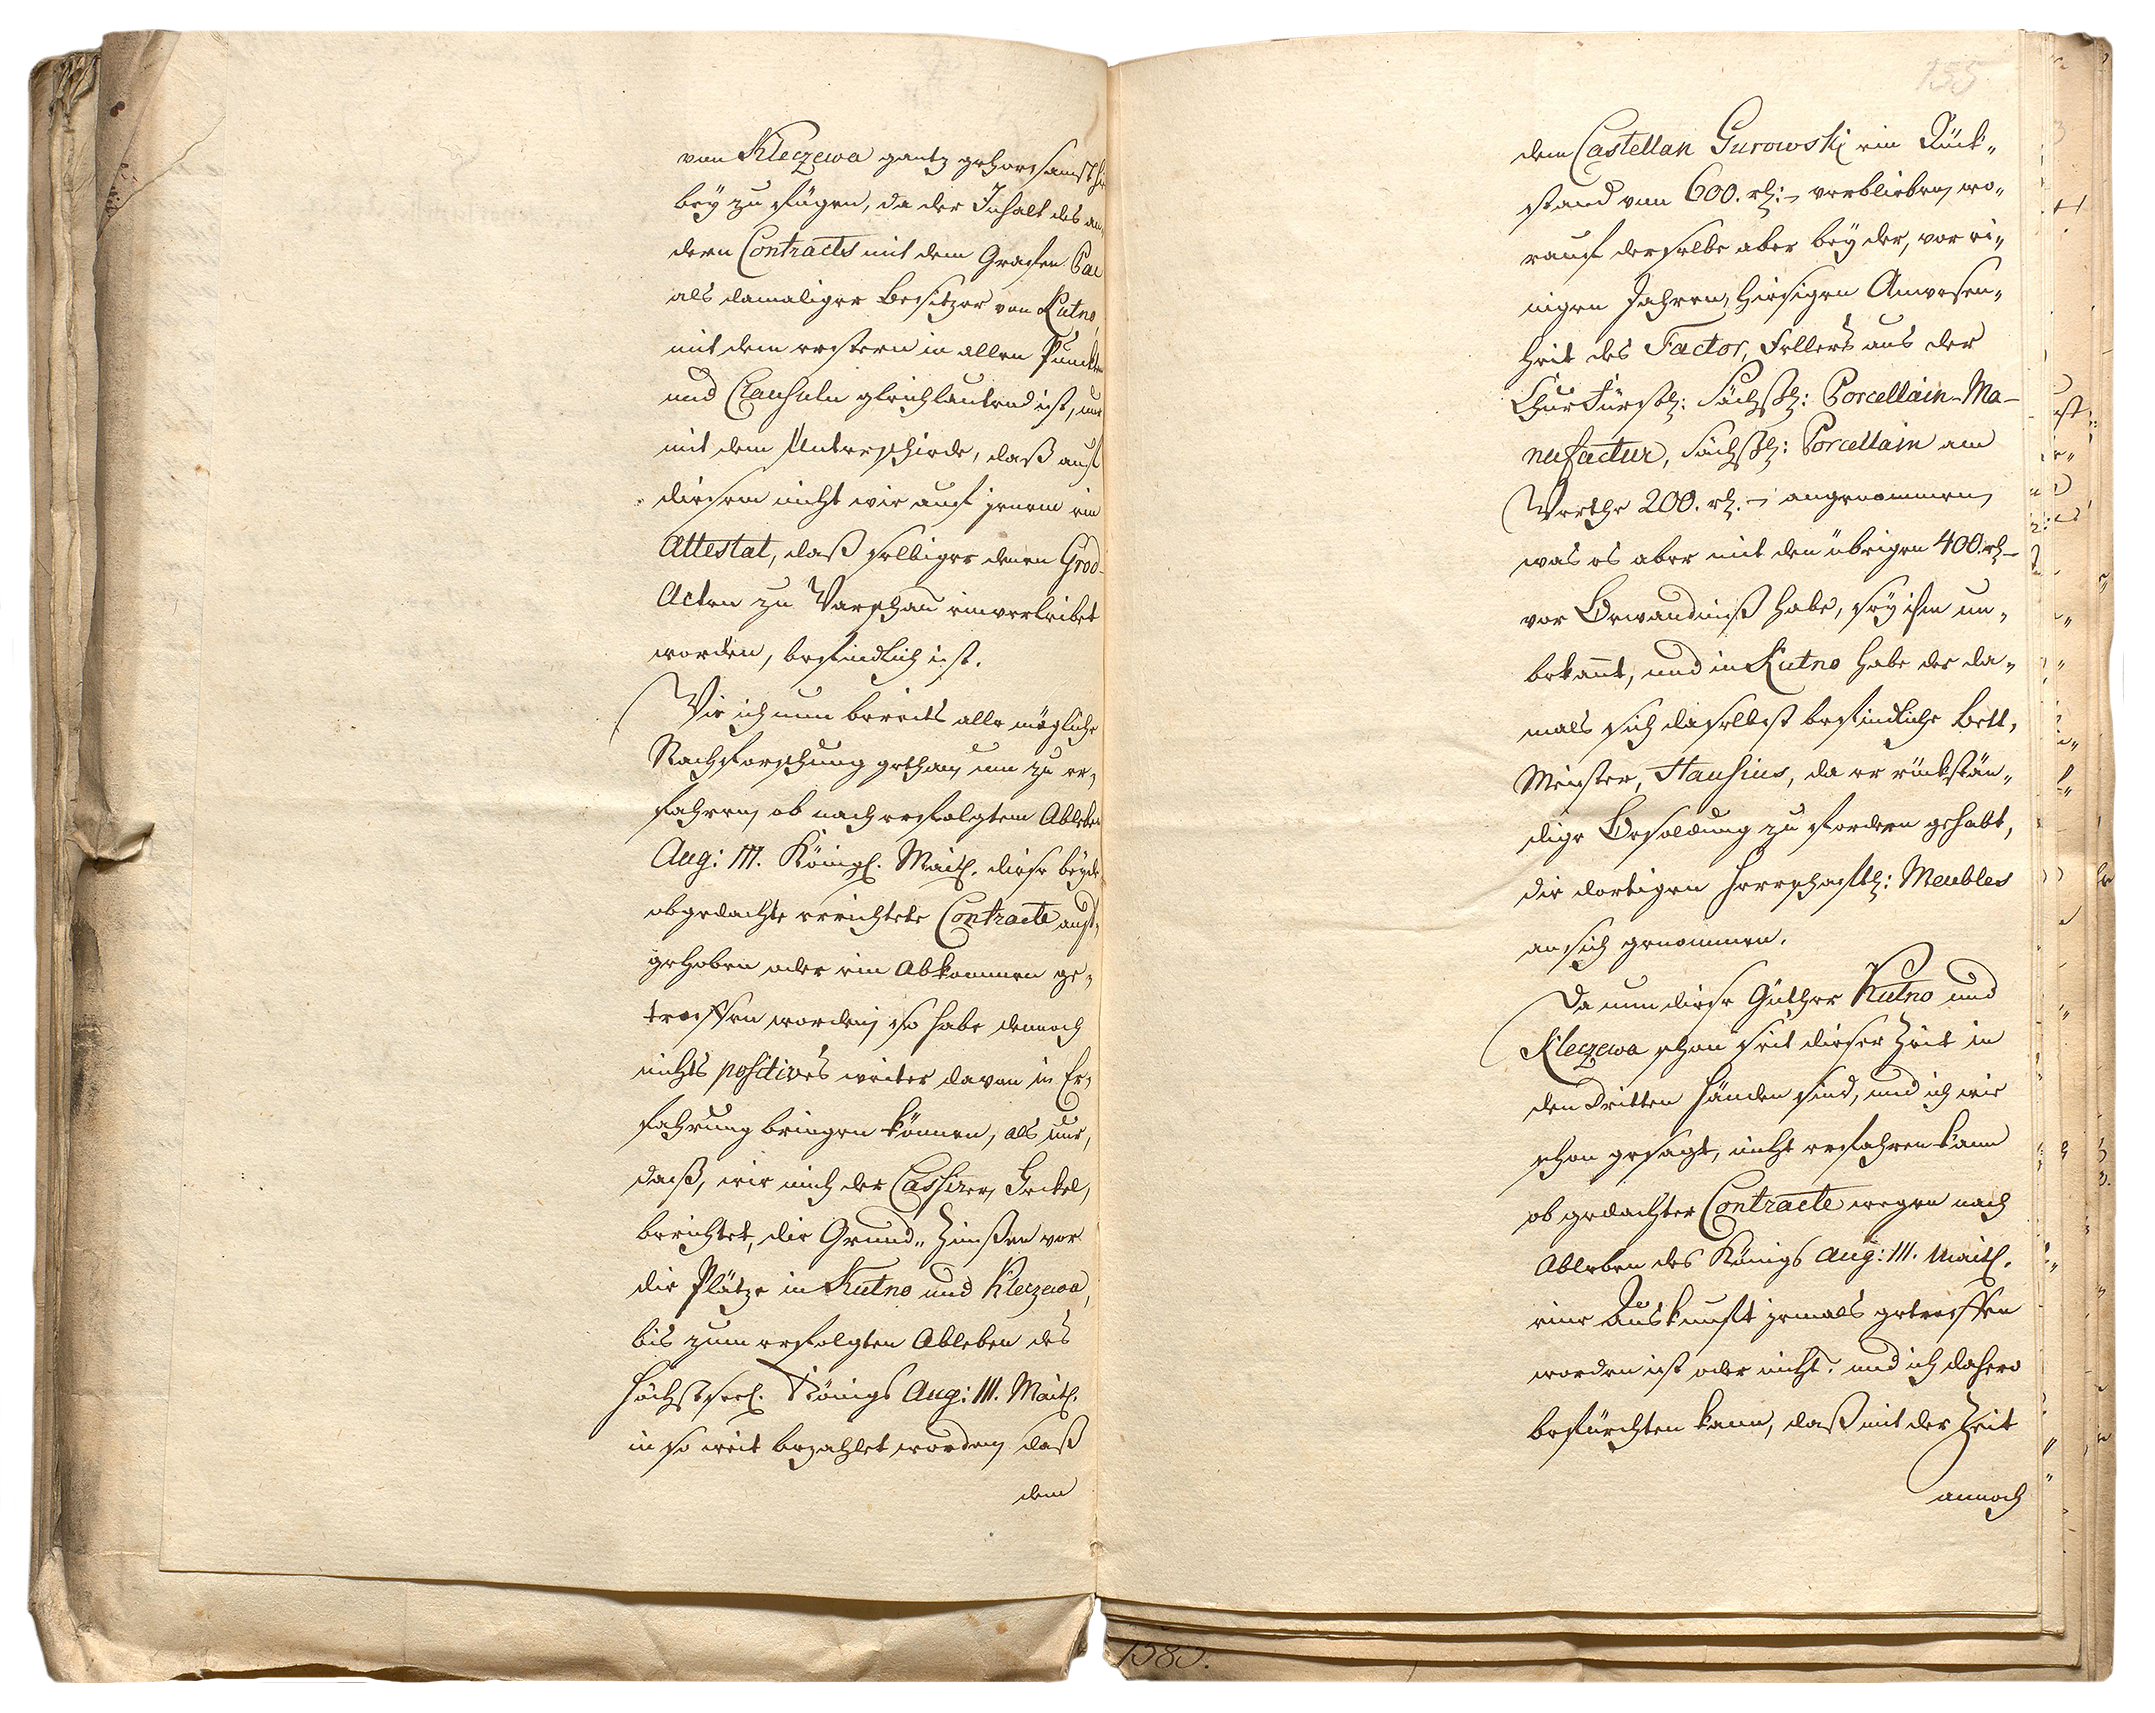 von Kleczewa gantz gehorsamst
bey zu fügen, da der Inhalt des an„
dern Contracts mit dem Grafen Pac
als damaliger Besitzer von Kutno,
mit dem erstern in allen Puncten
und Clausuln gleichlautend ist, nur
mit dem Unterschiede, daß auf
diesem nicht wie auf jenem ein
Attestat, daß selbiger denen Grod-
Acten zu Warschau einverleibet
worden, befindlich ist.
Wie ich nun bereits alle mögliche
Nachforschung gethan, um zu er„
fahren, ob nach erfolgtem Ableben
Aug: III. Königl. Mait. diese beyde
obgedachte errichtete Contracte auf„
gehoben oder ein Abkommen ge„
troffen worden, so habe dennoch
nichts positives weiter davon in Er„
fahrung bringen können, als nur,
daß, wie mich der Cassirer, Jeckel,
berichtet, die Grund„ Zinßen vor
die Plätze in Kutno und Kleczewa,
bis zum erfolgten Ableben des
Höchstseel. Königs Aug: III. Mait.
in so weit bezahlet worden, daß
dem
155
dem Castellan Gurowski ein Rück„
stand von 600. rh:- verblieben, wo„
rauf derselbe aber bey der, vor ei„
nigen Jahren, hiesigen Anwesen„
heit des Factor, Fellers aus der
ChurFürstl: Sächßl: Porcellain-Ma-
nufactur, Sächßl: Porcellain am
Werthe 200. rh.- angenommen,
was es aber mit den übrigen 400. rh-
vor Bewandniß habe, sey ihm un„
bekannt, und in Kutno habe der da„
mals sich daselbst befindliche Bett„
Meister, Hausius, da er rückstän„
dige Besoldung zu fordern gehabt,
die dortigen Herrschaftl: Meubles
an sich genommen.
Da nun diese Güther Kutno und
Kleczewa schon seit dieser Zeit in
den dritten Händen sind, und ich wie
schon gesagt, nicht erfahren kann
ob gedachter Contracte wegen nach
Ableben des Königs Aug: III. Mait.
eine Auskunft jemals getroffen
worden ist oder nicht. und ich dahero
befürchten kann, daß mit der Zeit
annoch